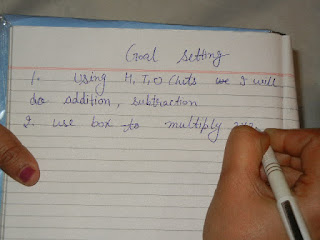 Goal setting
1. Using H, T, O Chots we I will
do addition, subtraction
2. use box to multiply